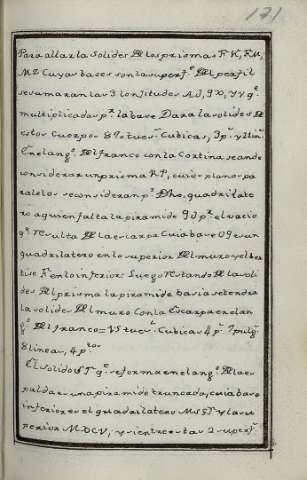 171
Para allar la Solides de los prismas FK, KM,
MZ Cuyas bases son la superf.e del perfil
se sumaran las 3 lonjitudes
multiplicadas p.r la base Dara la solides de
estos Cuerpos 890 tues.s Cubicas, 3 p.s y
En el ang.o del franco con la Cortina se ande
considerar un prisma RP, cuios planos pa
ralelos se consideran p.r dho quadrilate
ro a quien falta la piramide
q.e Resulta de la escarpa Cuia base
quadrilatero en lo superior del muro
en lo inferior: Luego Restando de la soli
des del prisma la piramide basia se tendra
la solides del muro Con la Escarpa en el an
g.o del franco = 75 tues.s Cubicas 4 p.s 7 pulg.s
8 lineas, 4 p.tos
El solido ST q.e se forma en el ang.o de la es
palda es una piramide truncada, cuia base
inferior es el quadrilatero MSGT y la su
perior MDCV, y si entre estas 2 superf.s